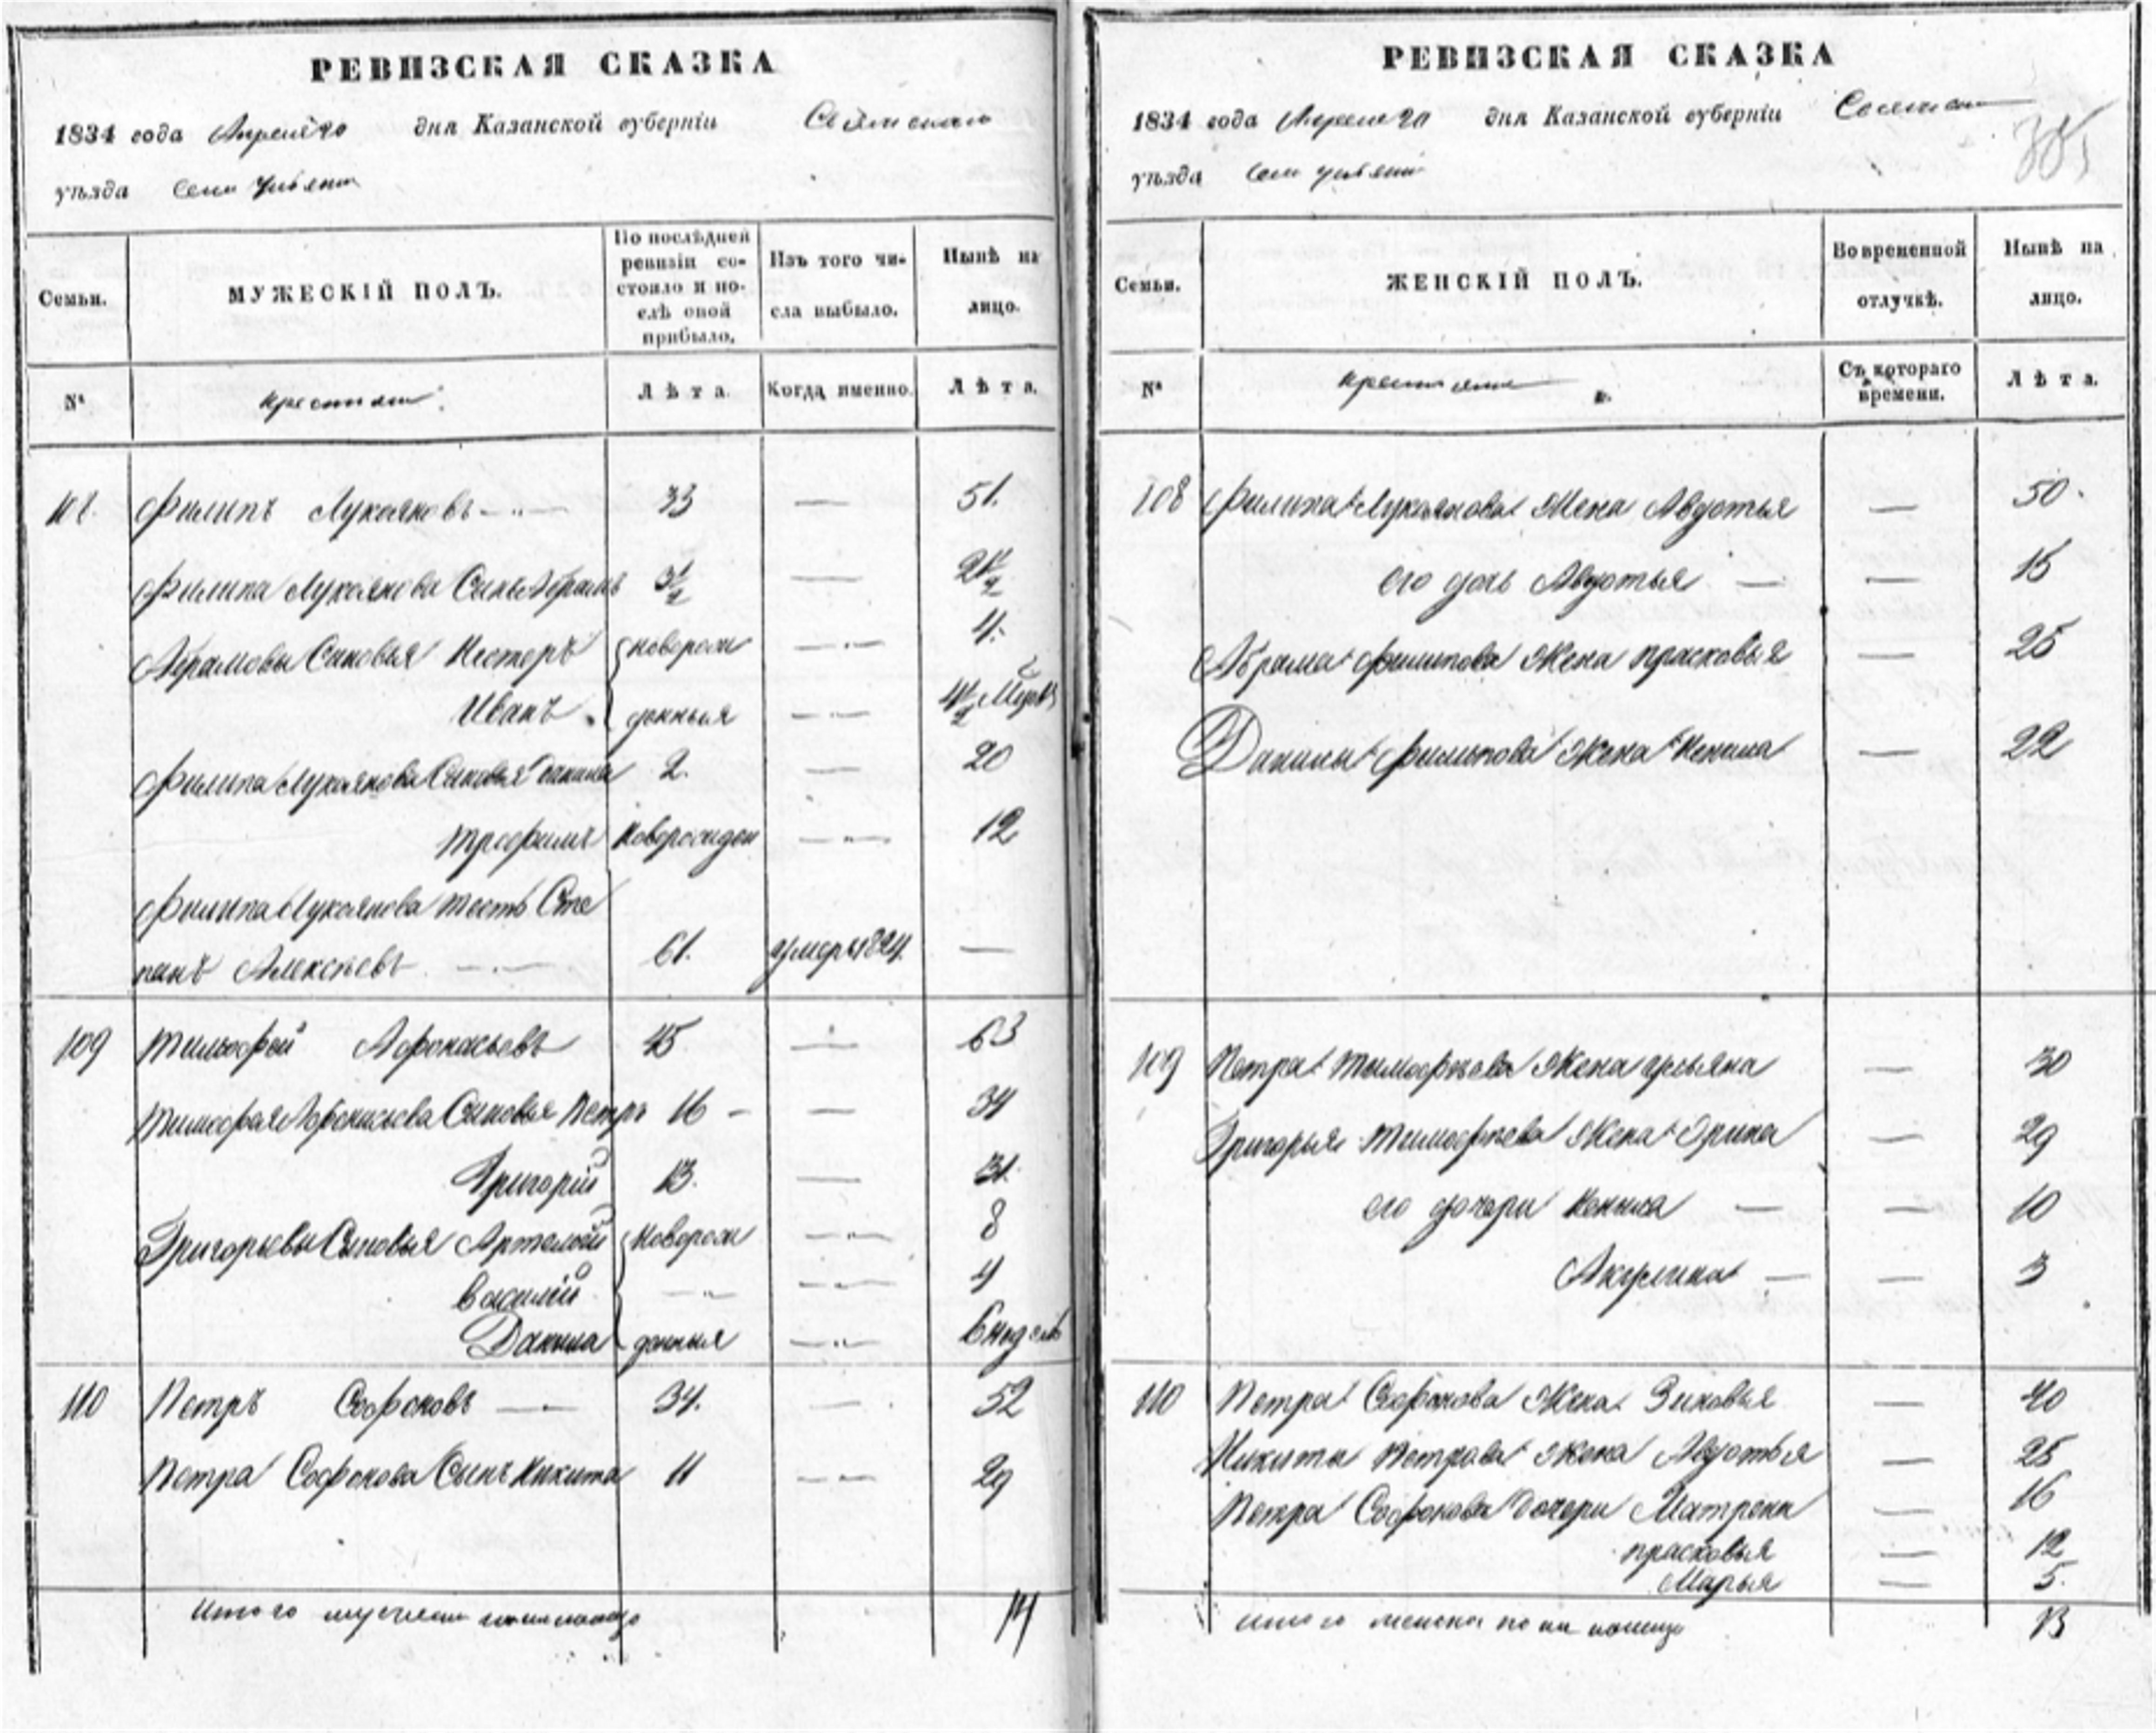 РЕВИЗСКАЯ СКАЗКА
1834 года Апреля 20 дня Казанской губернiи
уѣзда Села
Семьи.
МУЖЕСКIЙ ПОЛЪ.
По послѣдней
ревизiи со-
стояло и по-
слѣ оной
прибыло.
Изъ того чи-
сла выбыло.
Нынѣ на
лицо.
№
крестьян
Лѣта.
Когда именно.
Лѣта.
108 Филипъ Лукояновъ 33 — 51.
Филипа Лукоянова Сынъ Абрамъ 3½ — 21½
Абрамовы Сыновья Нестеръ новорож — 4.
Иванъ денныя —
Филипа Лукоянова Сыновья Данила 2. — 20
Трофимъ Новорожден — 12
Филипа Лукоянова тесть Сте
панъ Алексѣевъ 61. умеръ 1824. —
109 Тимофей Афонасьевъ 45 — 63
Тимофея Афонасьева Сыновья Петръ 16 — 34
Григорiй 13. — 31.
Григорьевы Сыновья Артемiй новорож — 8
Василiй — 4
Данила денныя — 6 недель
110 Петръ Софоновъ 34. — 52
Петра Софонова Сынъ Никита 11 — 29
Итого мужеска пола на лицо 14
РЕВИЗСКАЯ СКАЗКА
1834 года Апреля 20 дня Казанской губернiи
уѣзда Села
Семьи.
ЖЕНСКIЙ ПОЛЪ.
Во временной
отлучкѣ.
Нынѣ на
лицо.
№
крестьян
Съ котораго
времени.
Лѣта.
108 Филипа Лукоянова Жена Авдотья — 50.
его дочь Авдотья — 15
Абрама Филипова Жена Прасковья — 25
Данилы Филипова Жена Ненила — 22
109 Петра Тимофѣева Жена Ульяна — 30
Григорья Тимофѣева Жена Орина — 29
его дочери Ненила — 10
Акулина — 3
110 Петра Софонова Жена Зиновья — 40
Никиты Петрова Жена Авдотья — 25
Петра Софонова Дочери Матрена — 16
Прасковья — 12
Марья — 5.
Итого женска пола на лицо 13